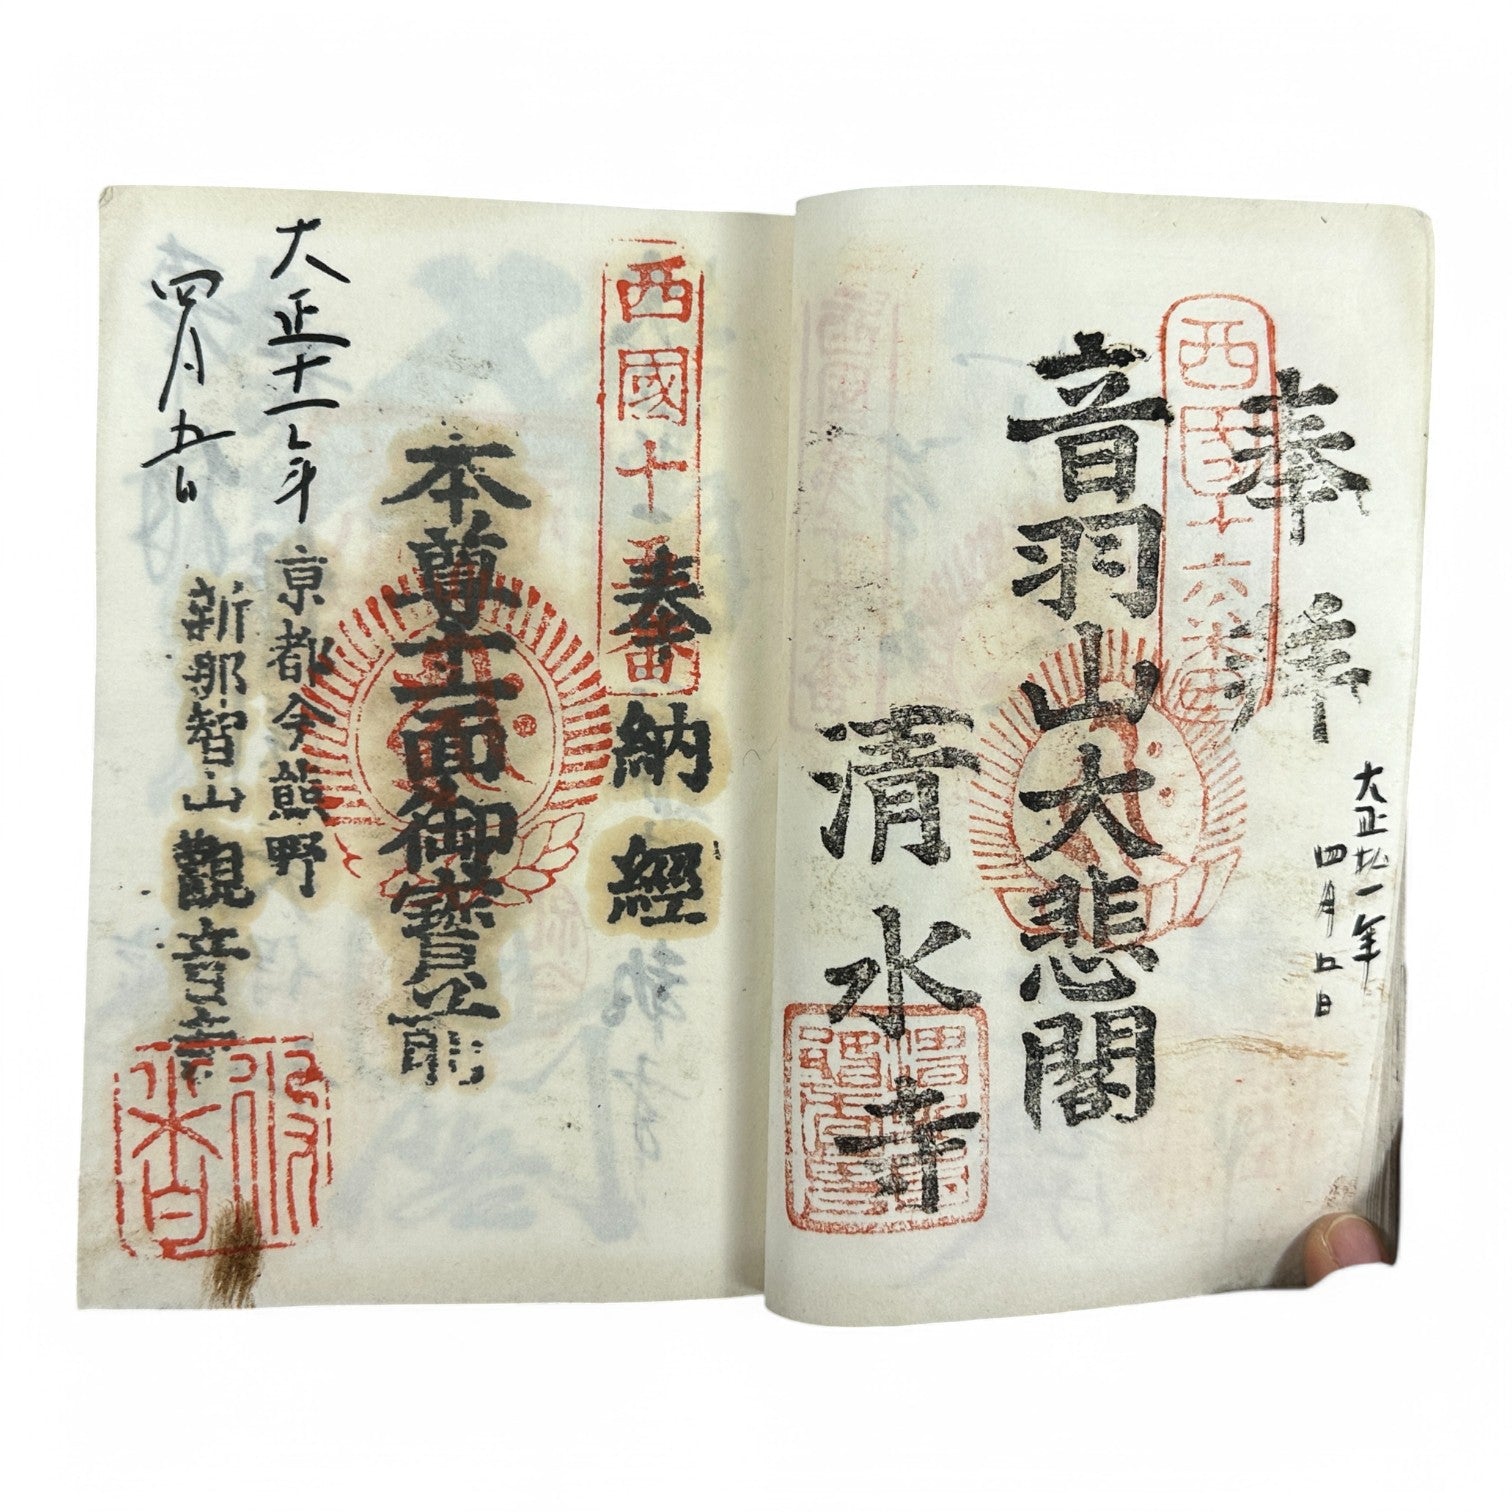 奉拝
西国十六番
大正拾一年
四月五日
音羽山大悲閣
清水寺
西國十五番
奉納經
本尊十一面御寳前
大正十一年
四月五日
京都今熊野
新那智山觀音寺